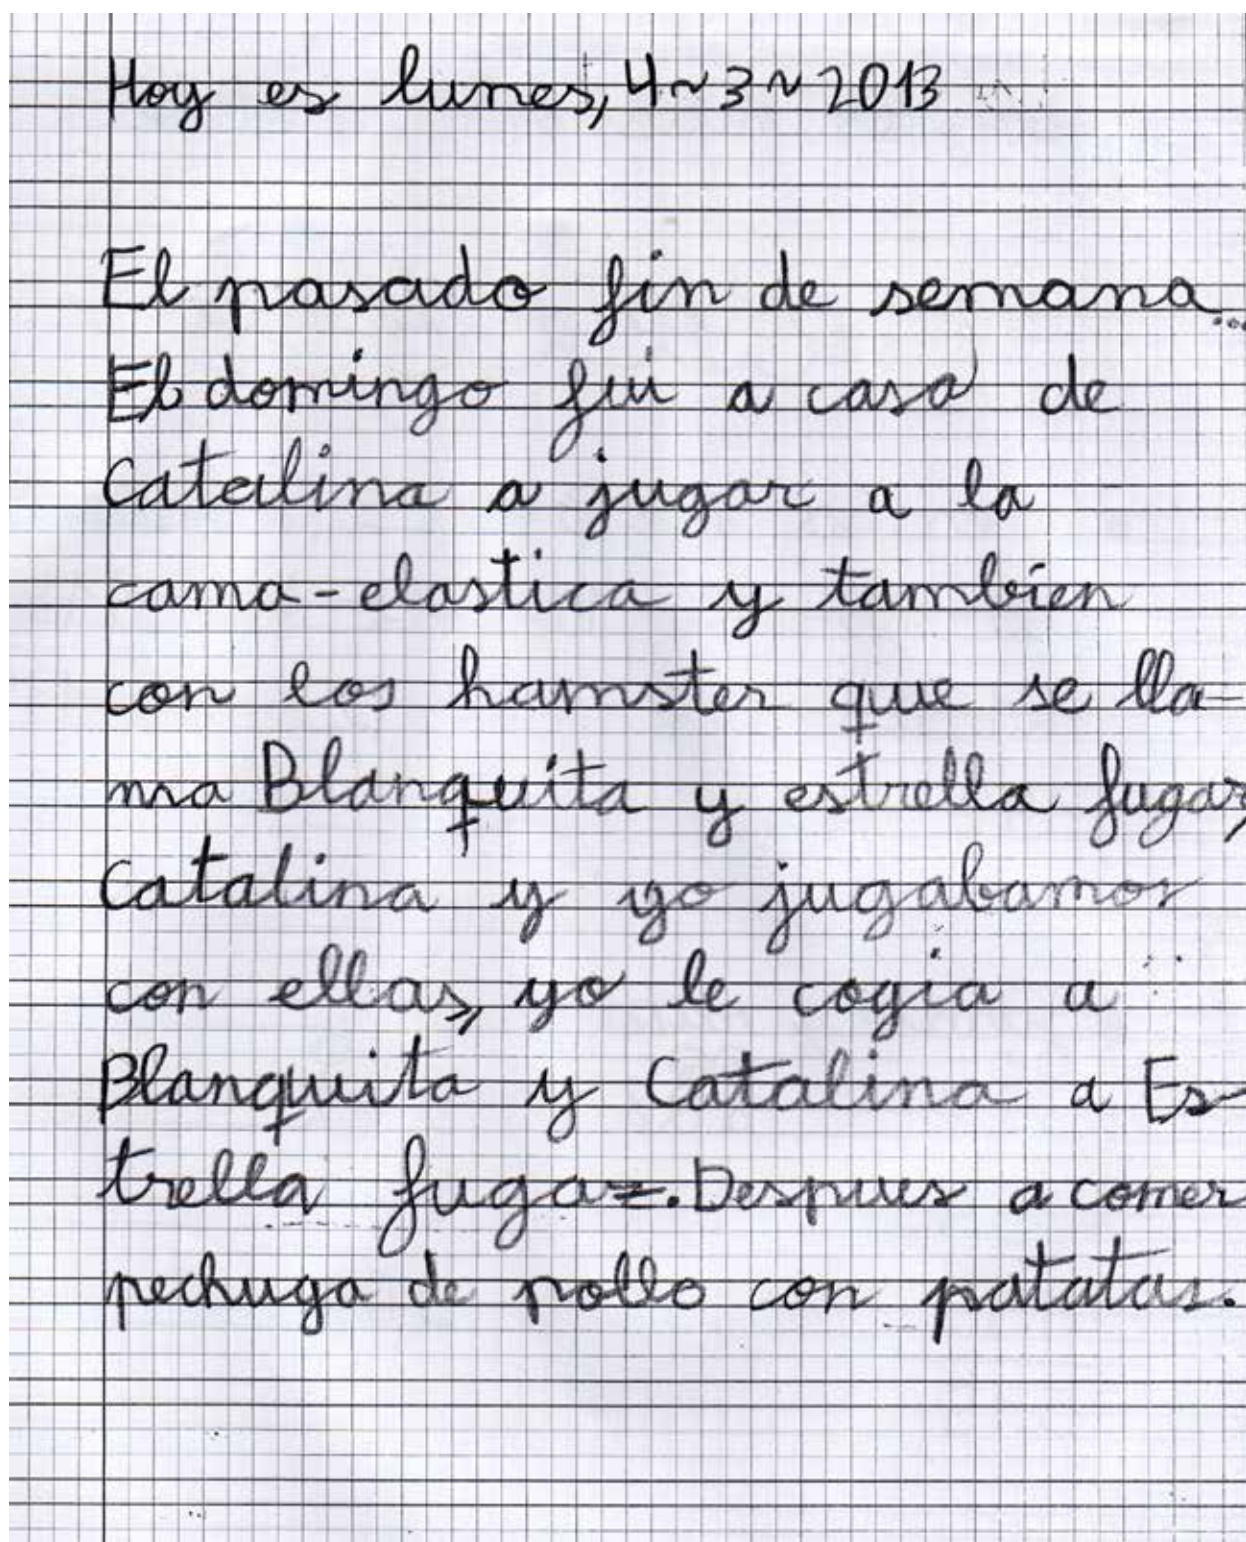 Hoy es lunes, 4~3~2013
El pasado fin de semana...
El domingo fui a casa de
Catalina a jugar a la
cama-elastica y tambien
con los hamster que se lla-
ma Blanquita y estrella fugaz,
Catalina y yo jugabamos
con ellas, yo le cogia a
Blanquita y Catalina a Es-
trella fugaz. Despues a comer
pechuga de pollo con patatas.